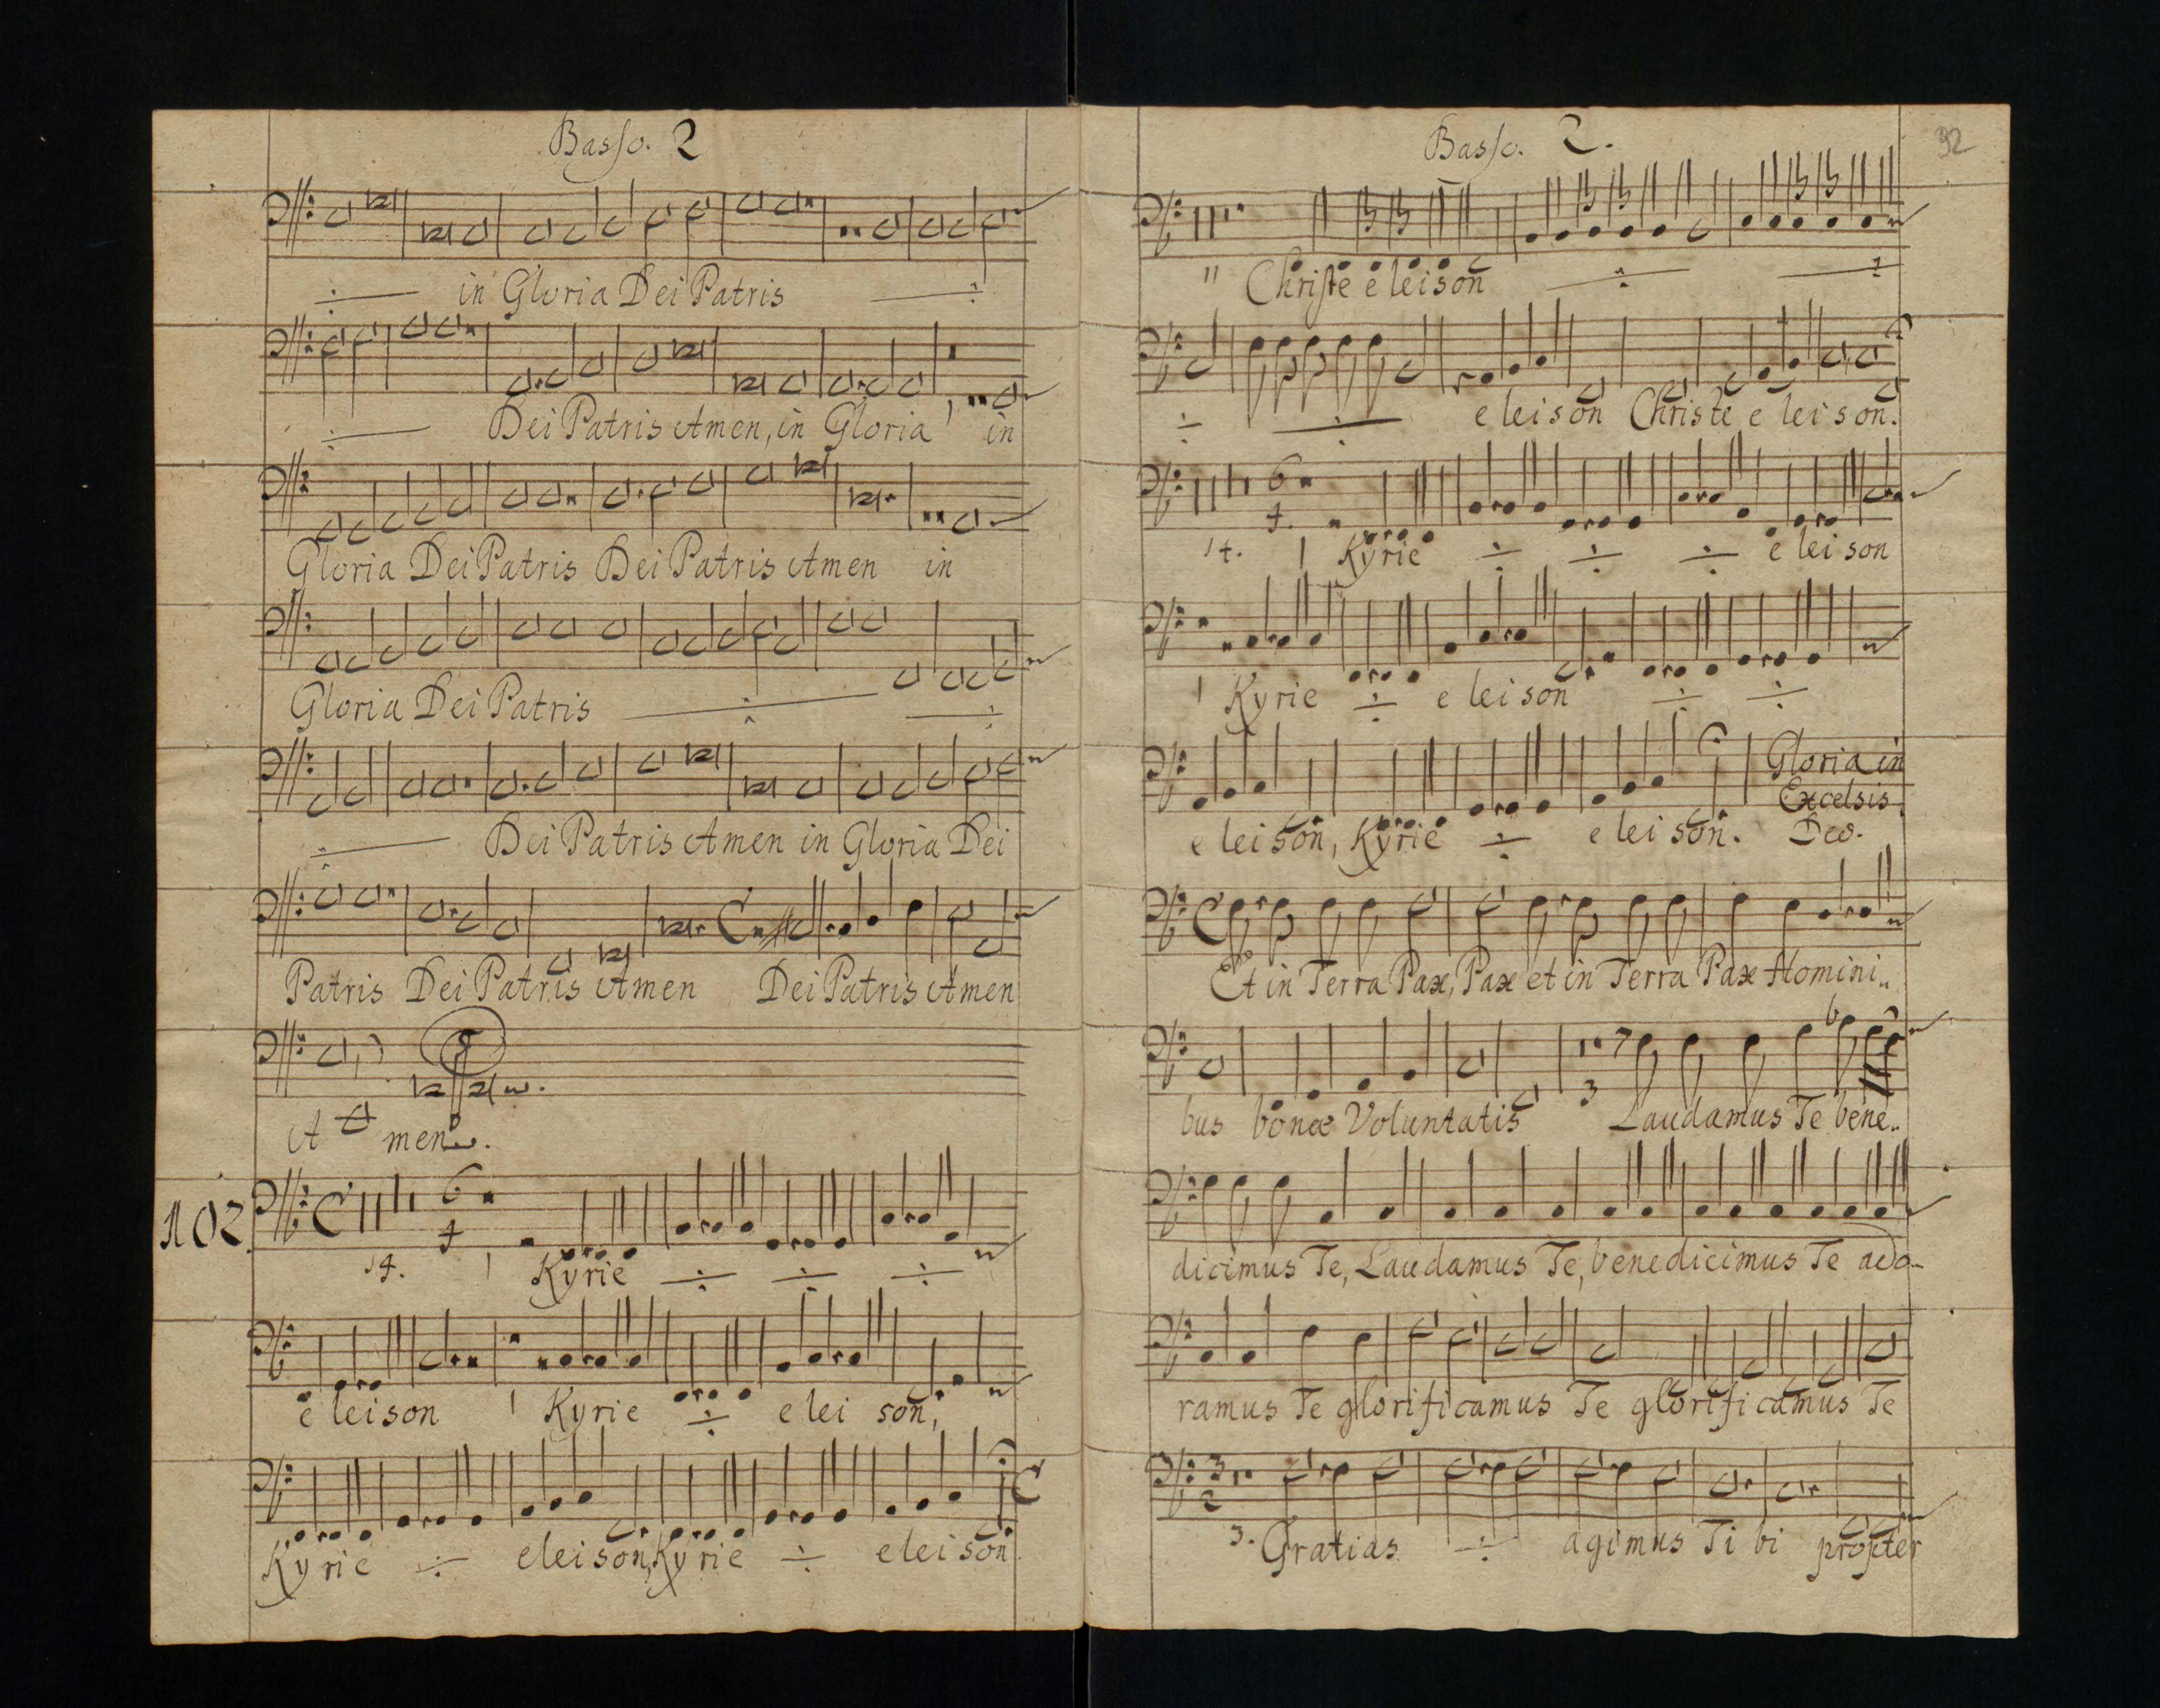 Basso. 2
in Gloria Dei Patris
Dei Patris Amen, in Gloria in
Gloria Dei Patris Dei Patris Amen in
Gloria Dei Patris
Dei Patris Amen in Gloria Dei
Patris Dei Patris Amen Dei Patris Amen
A men.
102.
6
4
14. 1 Kyrie
e leison 1 Kyrie e lei son,
Kyrie eleison, Kyrie elei son
Basso. 2.
32
11 Christe e leison
e leison Christe e leison.
6
4.
14. 1 Kyrie e lei son
1 Kyrie e lei son
Gloria in
Excelsis.
e lei son, Kyrie e lei son. Deo.
Et in Terra Pax, Pax et in Terra Pax Homini„
bus bonæ Voluntatis 3 Laudamus Te bene„
dicimus Te, Laudamus Te, benedicimus Te ado-
ramus Te glorificamus Te glorificamus Te
3
2
3. Gratias agimus Ti bi propter